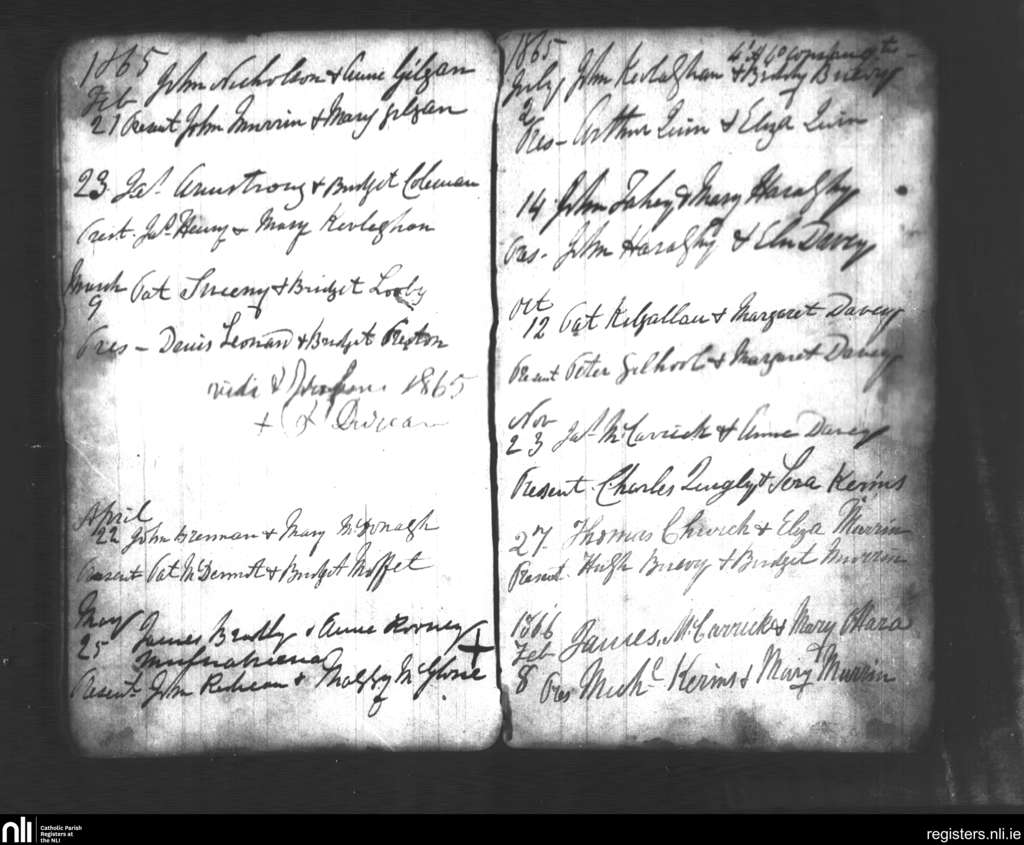 1865
Feb John Nicholson & Anne Gilgan
21 Present John Murrin & Mary Gilgan
23 Jas. Armstrong & Bridget Coleman
Prest. Jas. Henry & Mary Kevlaghan
March Pat Sweeny & Bridget Looby
9
Pres - Denis Leonard & Bridget
vidi 1865
+
April
22 John Brennan & Mary McDonagh
Present Pat McDermott & Bridget Moffet
May James Bradly & Anne Rooney
25
Present John & McGlone
1865
July John Kevlaghan & Biddy Breevy
2
Pres - Arthur Quin & Eliza Quin
14 John Fahey & Mary Haraghy
Pres - John Haraghy & Eln Davey
Oct
12 Pat Kilgallan & Margaret Davey
Present Peter Gilhool & Margaret Davey
Nov
23 Jas. McCarrick & Anne Davey
Present Charles & Sera Kerins
27. Thomas Church & Eliza Murrin
Present Hugh Breevy & Bridget Murrin
1866
Feb James McCarrick & Mary OHara
8 Pres Michl. Kerins & Mary Murrin
nli
Catholic Parish
Registers at
the NLI
registers.nli.ie